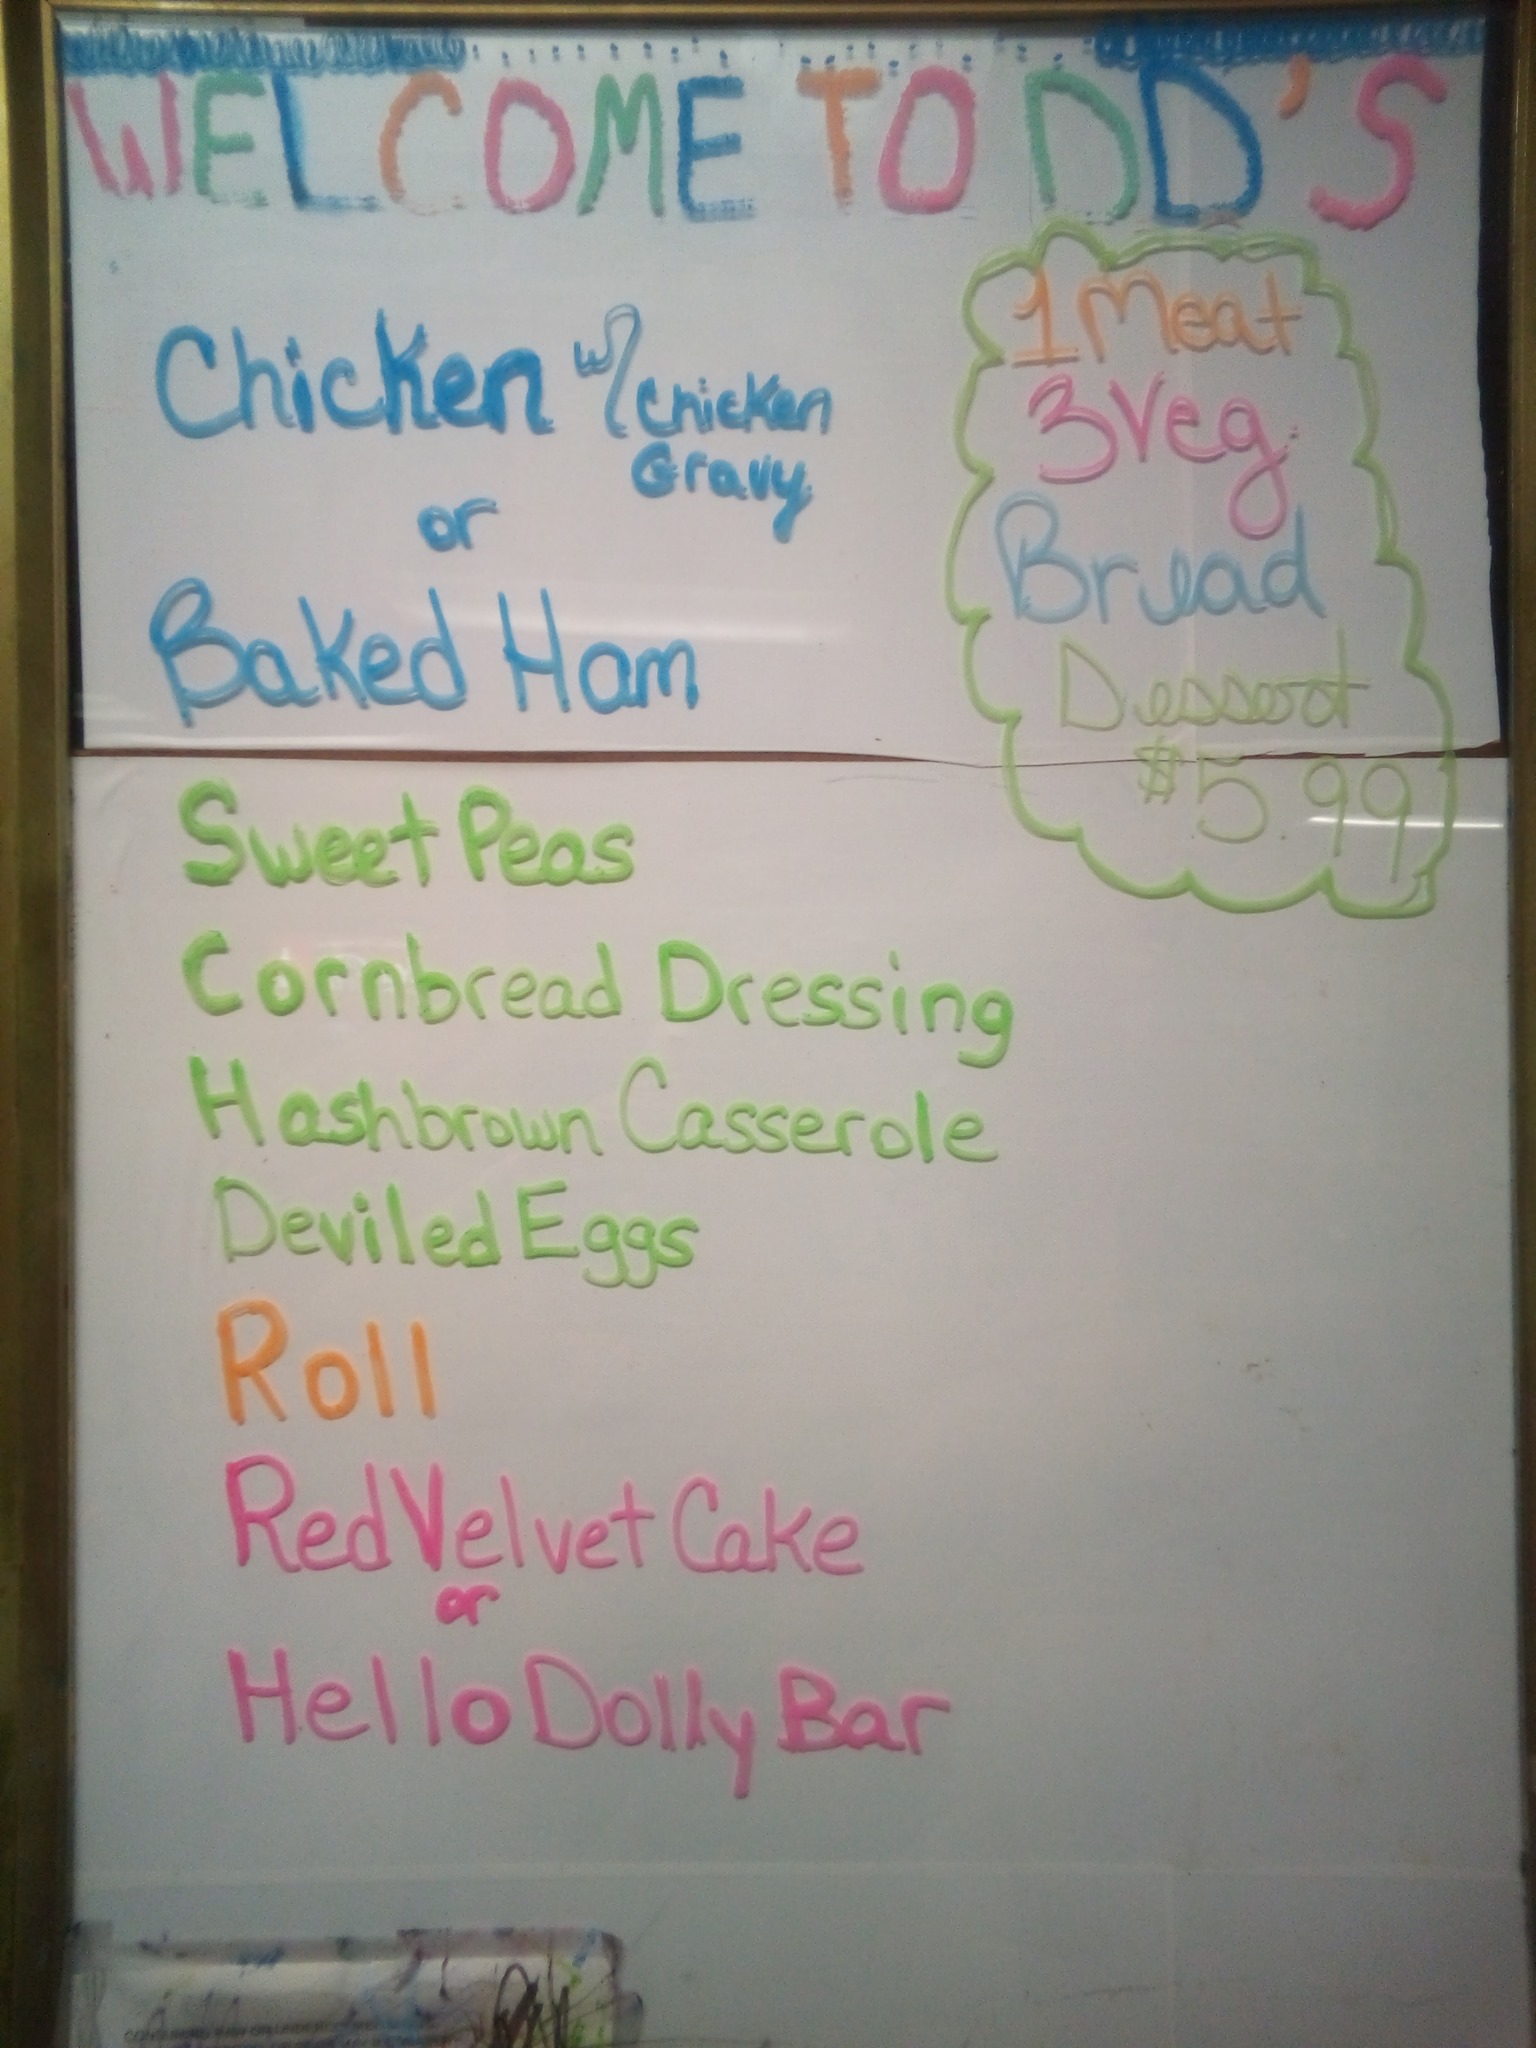 WELCOME TO DD'S
1 Meat
3 Veg
Bread
Dessert
$5.99
Chicken w/ Chicken
Gravy
or
Baked Ham
Sweet Peas
Cornbread Dressing
Hashbrown Casserole
Deviled Eggs
Roll
Red Velvet Cake
or
Hello Dolly Bar